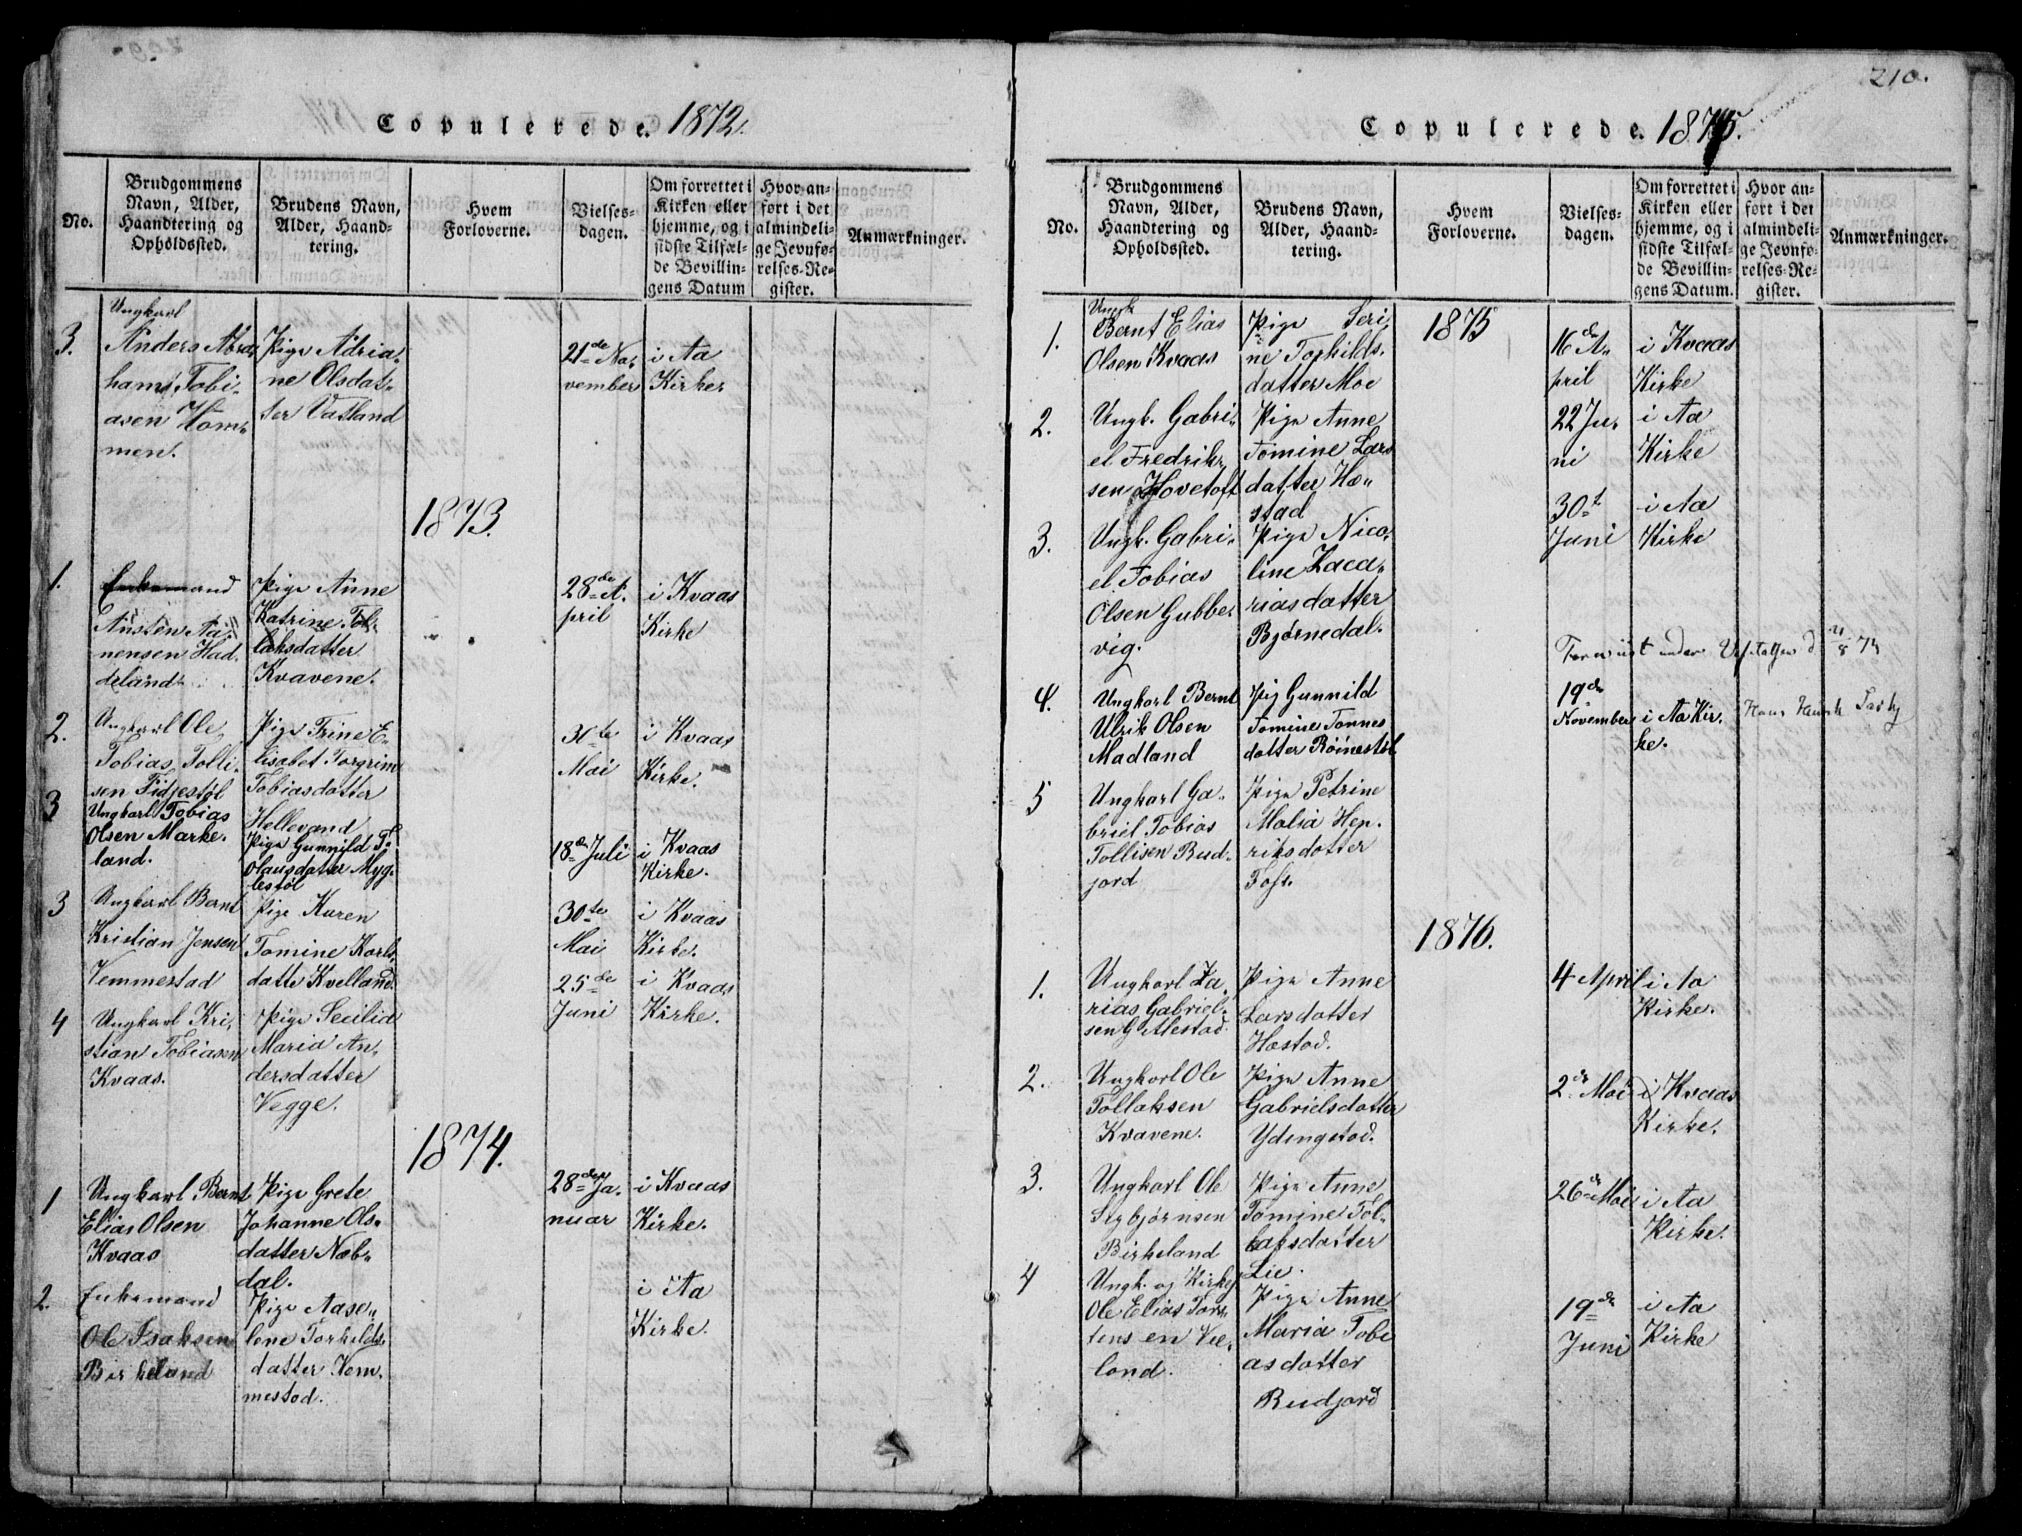 Copulerede. 1872.
No.
Brudgommens
Navn, Alder,
Haandtering og
Opholdssted.
Brudens Navn,
Alder, Haand-
tering.
Hvem
Forloverne.
Vielses-
dagen.
Om forrettet i
Kirken eller
hjemme, og i
sidste Tilfæl-
de Bevillin-
gens Datum
Hvor an-
ført i det
almindeli-
ge Jevnfø-
relses-Re-
gister.
Anmærkninger.
3.
Ungkarl
Anders Abra
hams Tobi-
asen Hom-
men.
Pige Adria-
ne Olsdat-
ter Vatland
21de No-
vember
i Aa
Kirke
1873.
1.
Enkemand
Ansten Aa-
nensen Had-
deland
Pige Anne
Katrine Tol-
laksdatter
Kvavene.
28de A-
pril
i Kvaas
Kirke
2.
Ungkarl Ole
Tobias Tolli-
sen Fidjestøl
Pige Trine E-
lisabet Torgrim
Tobiasdatter
Hellevand
31te
Mai
i Kvaas
Kirke.
3
Ungkarl Tobias
Olsen Marke-
land.
Pige Gunnild T.
Olausdatter Myg-
lestøl
18de Juli
i Kvaas
Kirke.
3
Ungkarl Bernt
Kristian Jensen
Vemmestad
Pige Karen
Tomine Karls-
datte Kvelland
30te
Mai
i Kvaas
Kirke.
4
Ungkarl Kri-
stian Tobiasen
Kvaas.
Pige Secilia
Maria An-
dersdatter
Vegge.
25de
Juni
i Kvaas
Kirke.
1874.
1
Ungkarl Bernt
Elias Olsen
Kvaas
Pige Grete
Johanne Ols-
datter Næb-
dal.
28de Ja-
nuar
i Kvaas
Kirke.
2.
Enkemand
Ole Isaksen
Birkeland
Pige Aase-
lene Torkilds-
datter Vem-
mestad.
i Aa
Kirke.
210.
Copulerede. 1875.
No.
Brudgommens
Navn, Alder,
Haandtering og
Opholdssted.
Brudens Navn,
Alder, Haand-
tering.
Hvem
Forloverne.
Vielses-
dagen.
Om forrettet i
Kirken eller
hjemme, og i
sidste Tilfæl-
de Bevillin-
gens Datum.
Hvor an-
ført i det
almindeli-
ge Jevnfø-
relses-Re-
gister.
Anmærkninger.
1875
1.
Ungk
Bernt Elias
Olsen Kvaas
Pige Seri-
ne Torkilds-
datter Moe
16de A-
pril
i Kvaas
Kirke
2.
Ungk. Gabri-
el Fredrik-
sen Hovetoft
Pige Anne
Tomine Lars
datter Hæ-
stad
22 Ju-
ni
i Aa
Kirke
3.
Ungk. Gabri-
el Tobias
Olsen Gubbe-
vig.
Pige Nico-
line Zaca-
riasdatter
Bjørnedal.
30t
Juni
i Aa
Kirke
4.
Ungkarl Bernt
Ulrik Olsen
Madland
Pig Gunnild
Tomine Tonnes
datter Röinestøl
19de
November
i Aa Kir-
ke.
5
Ungkarl Ga-
briel Tobias
Tollisen Bud-
jord
Pige Petrine
Malia Hen-
riksdatter
Foss.
1876.
1.
Ungkarl Za-
rias Gabriel-
sen
Pige Anne
Larsdatter
Hæstad.
4 April
i Aa
Kirke.
2.
Ungkarl Ole
Tollaksen
Kvavene.
Pige Anne
Gabrielsdatter
Ydingstad.
2de Mai
i Kvaas
Kirke.
3.
Ungkarl Ole
Segbjørnsen
Birkeland
Pige Anne
Tomine Tol-
laksdatter
Lie.
26de Mai
i Aa
Kirke.
4
Ungk. og Kirkes.
Ole Elias Tors-
tensen Ve-
land.
Pige Anne
Maria Tobi
asdatter
Budjord
19de
Juni
i Aa
Kirke